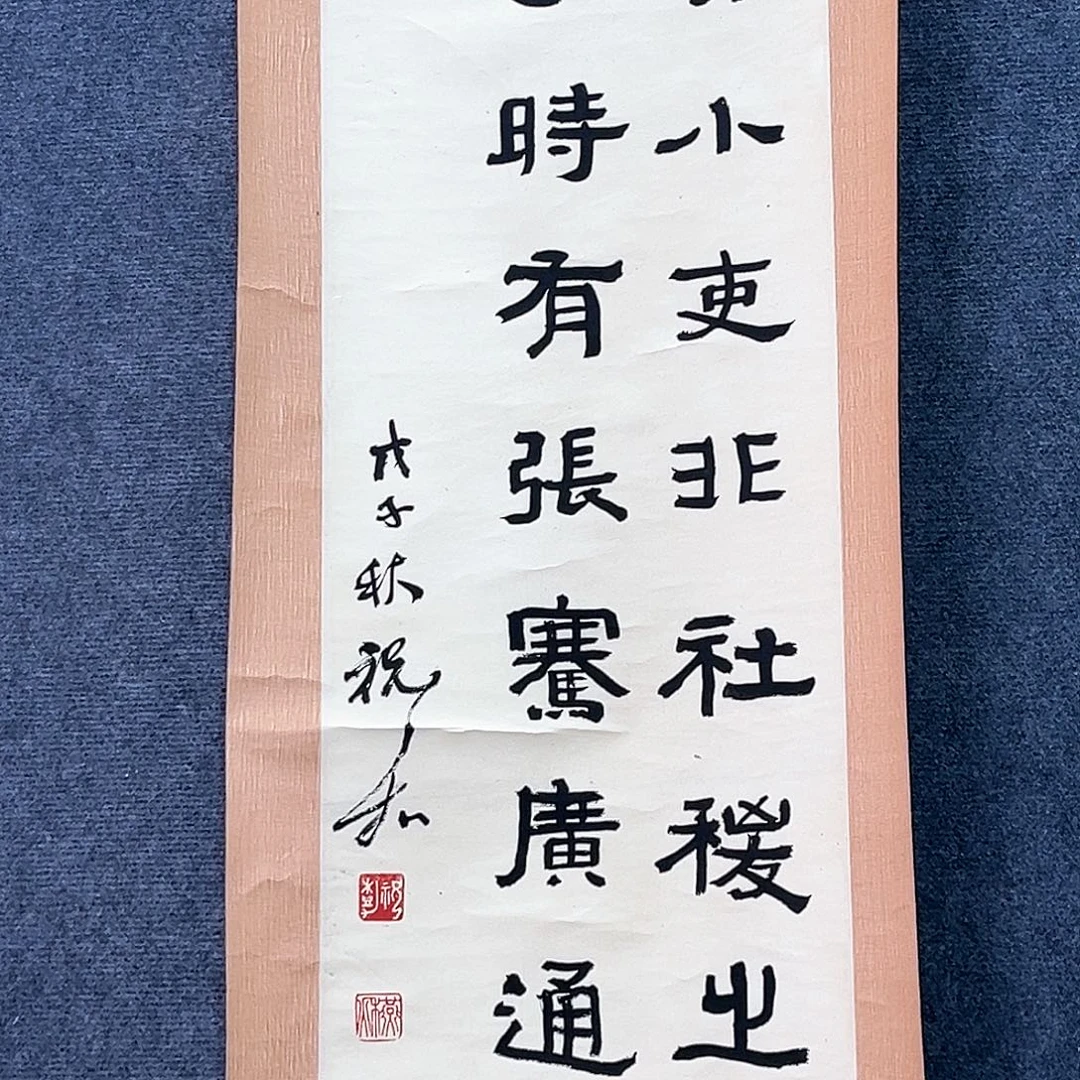 小吏非社稷之
時有張騫廣通
戊子秋祝